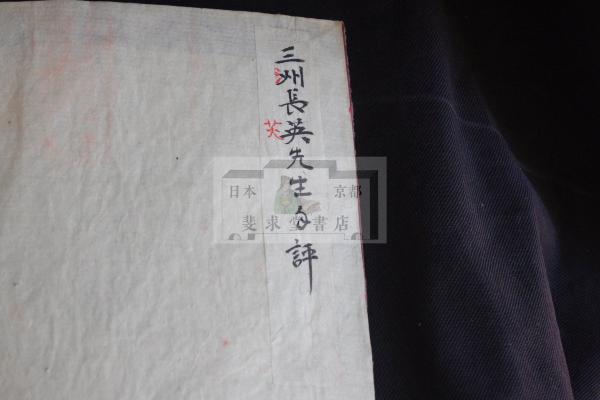 三州長英先生自評
芡
日本 京都
斐求堂書店